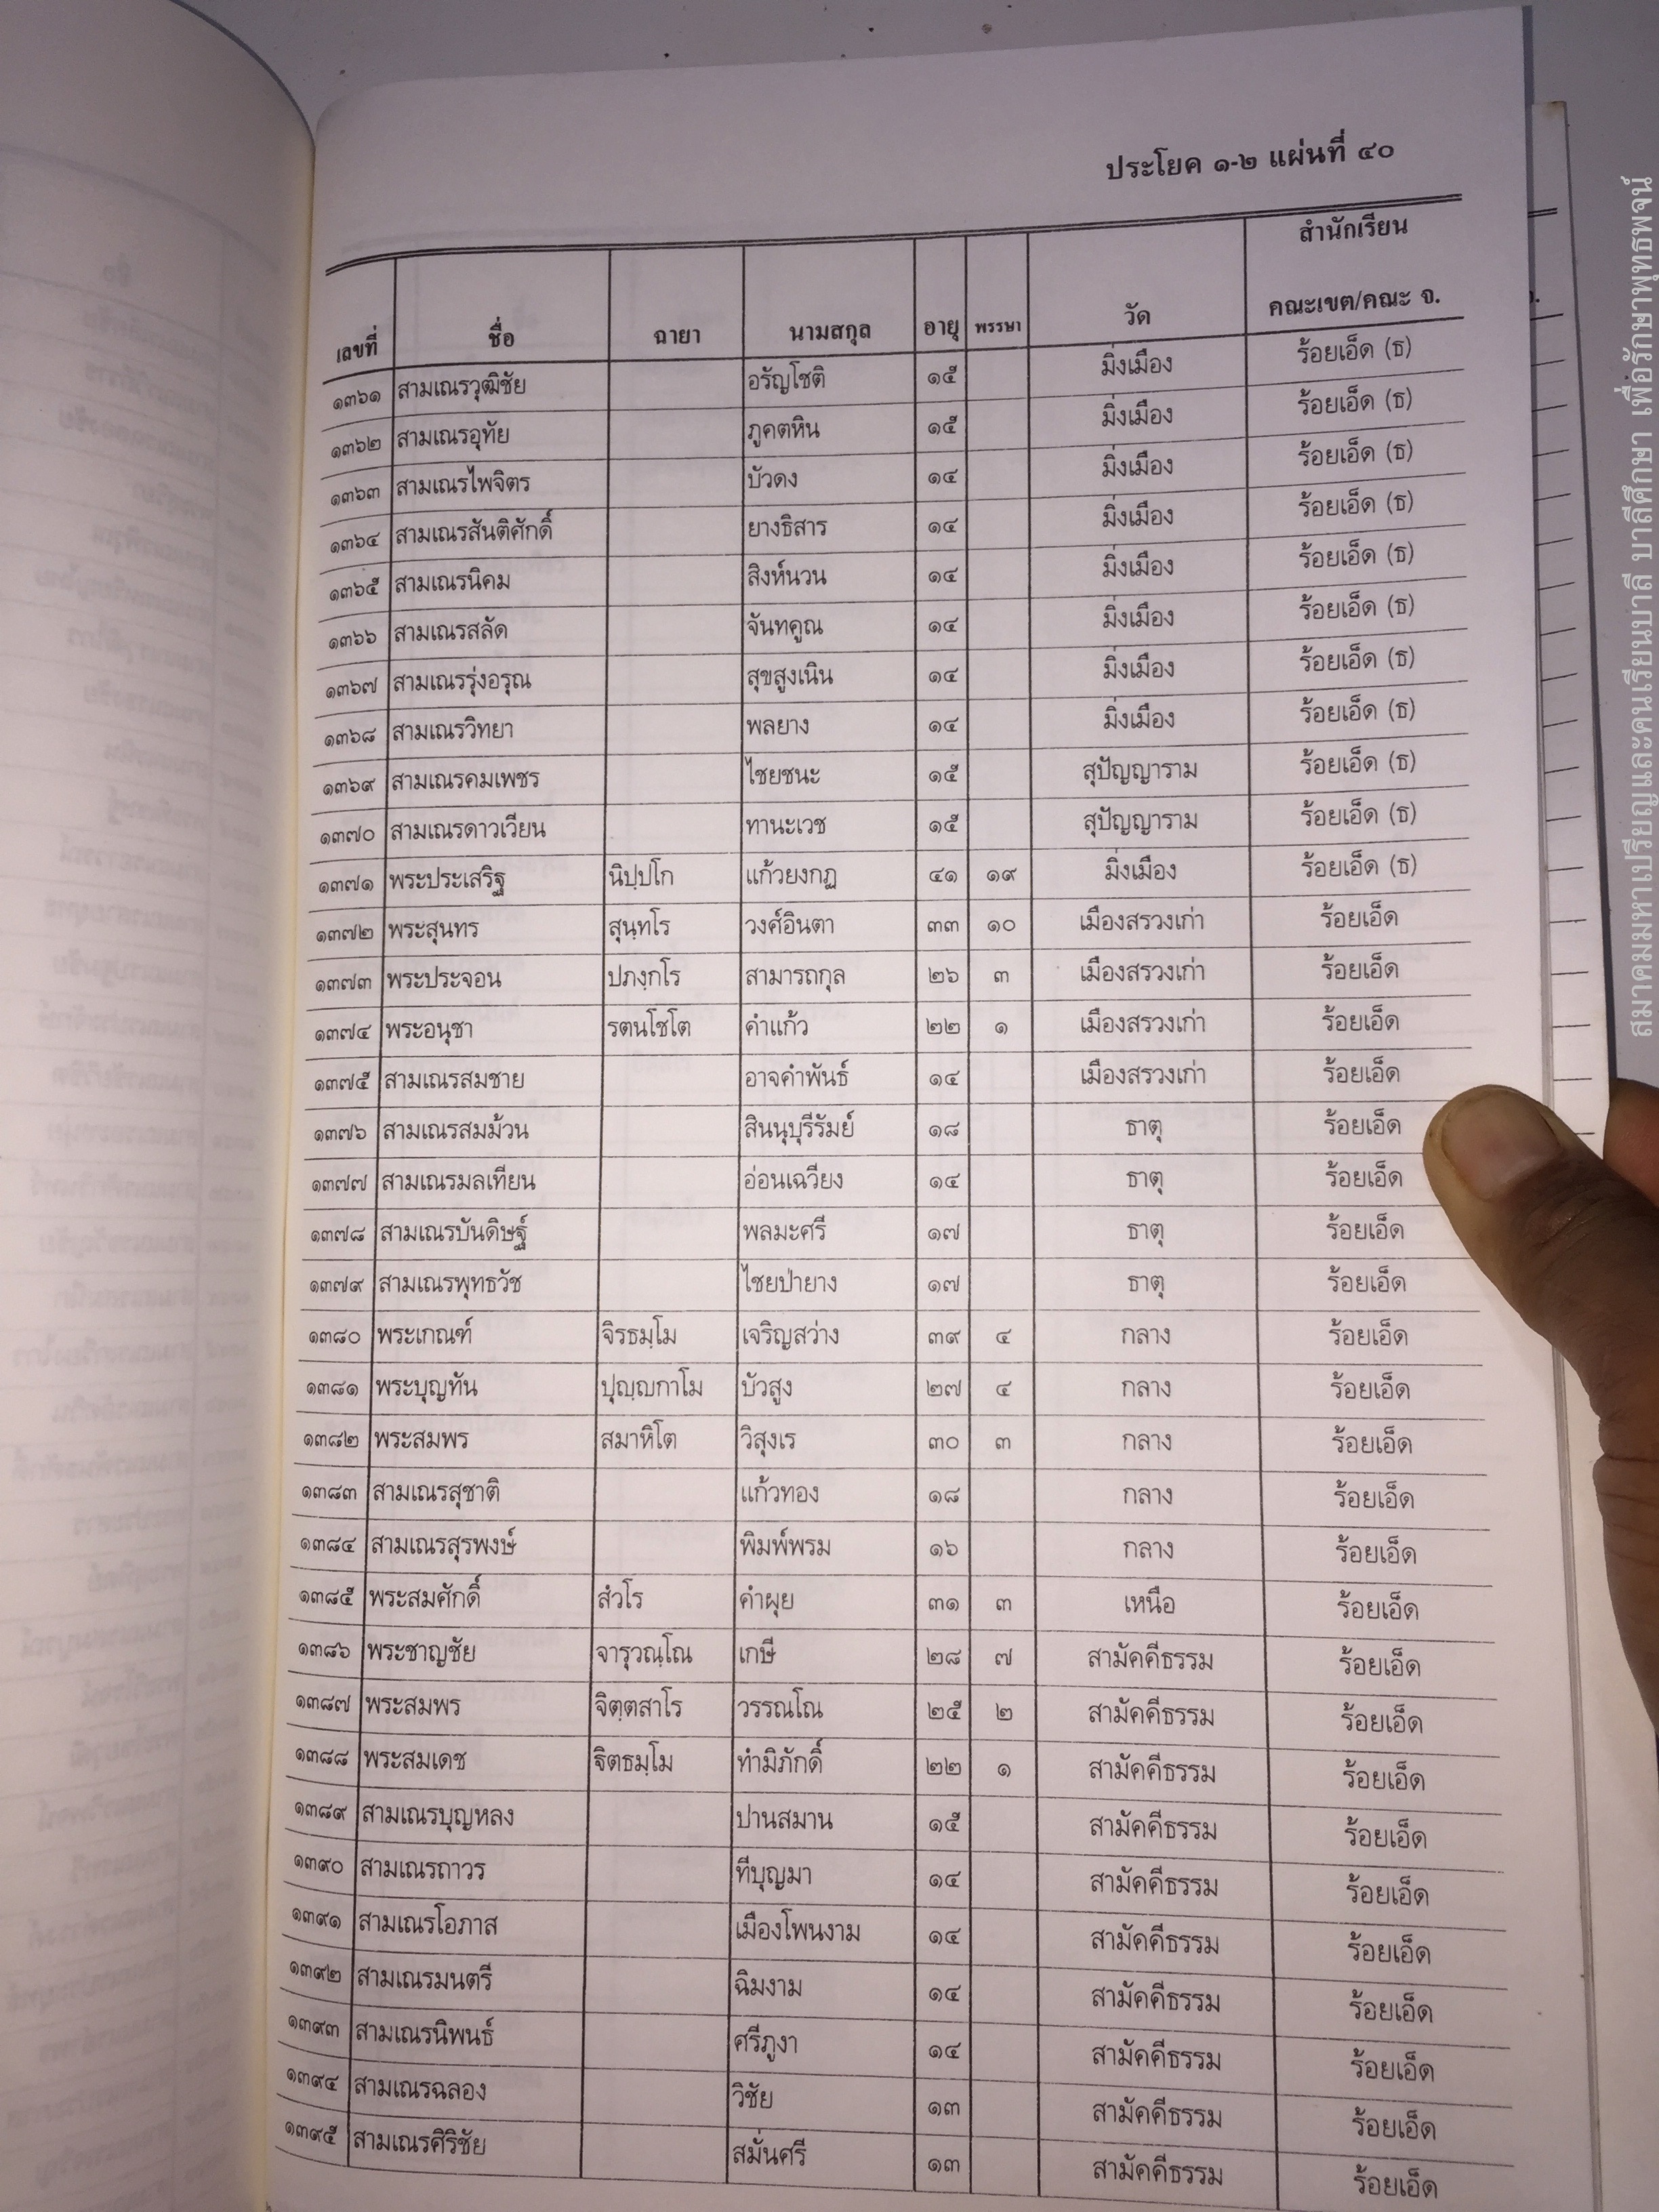 ประโยค ๑-๒ แผ่นที่ ๔๐
เลขที่ ชื่อ ฉายา นามสกุล อายุ พรรษา วัด สำนักเรียน คณะเขต/คณะ จ.
๑๓๖๑ สามเณรวุฒิชัย อรัญโชติ ๑๕ มิ่งเมือง ร้อยเอ็ด (ธ)
๑๓๖๒ สามเณรอุทัย ภูคตหิน ๑๕ มิ่งเมือง ร้อยเอ็ด (ธ)
๑๓๖๓ สามเณรไพจิตร บัวดง ๑๔ มิ่งเมือง ร้อยเอ็ด (ธ)
๑๓๖๔ สามเณรสันติศักดิ์ ยางธิสาร ๑๔ มิ่งเมือง ร้อยเอ็ด (ธ)
๑๓๖๕ สามเณรนิคม สิงห์นวน ๑๔ มิ่งเมือง ร้อยเอ็ด (ธ)
๑๓๖๖ สามเณรสลัด จันทคูณ ๑๔ มิ่งเมือง ร้อยเอ็ด (ธ)
๑๓๖๗ สามเณรรุ่งอรุณ สุขสูงเนิน ๑๔ มิ่งเมือง ร้อยเอ็ด (ธ)
๑๓๖๘ สามเณรวิทยา พลยาง ๑๔ มิ่งเมือง ร้อยเอ็ด (ธ)
๑๓๖๙ สามเณรคมเพชร ไชยชนะ ๑๕ สุปัญญาราม ร้อยเอ็ด (ธ)
๑๓๗๐ สามเณรดาวเวียน ทานะเวช ๑๕ สุปัญญาราม ร้อยเอ็ด (ธ)
๑๓๗๑ พระประเสริฐ นิปฺปโก แก้วยงกฏ ๔๑ ๑๙ มิ่งเมือง ร้อยเอ็ด (ธ)
๑๓๗๒ พระสุนทร สุนฺทโร วงศ์อินตา ๓๓ ๑๐ เมืองสรวงเก่า ร้อยเอ็ด
๑๓๗๓ พระประจอน ปภงฺกโร สามารถกุล ๒๖ ๓ เมืองสรวงเก่า ร้อยเอ็ด
๑๓๗๔ พระอนุชา รตนโชโต คำแก้ว ๒๒ ๑ เมืองสรวงเก่า ร้อยเอ็ด
๑๓๗๕ สามเณรสมชาย อาจคำพันธ์ ๑๔ เมืองสรวงเก่า ร้อยเอ็ด
๑๓๗๖ สามเณรสมม้วน สินนุบุรีรัมย์ ๑๘ ธาตุ ร้อยเอ็ด
๑๓๗๗ สามเณรมลเทียน อ่อนเฉวียง ๑๔ ธาตุ ร้อยเอ็ด
๑๓๗๘ สามเณรบันดิษฐ์ พลมะศรี ๑๗ ธาตุ ร้อยเอ็ด
๑๓๗๙ สามเณรพุทธวัช ไชยป่ายาง ๑๗ ธาตุ ร้อยเอ็ด
๑๓๘๐ พระเกณฑ์ จิรธมฺโม เจริญสว่าง ๓๙ ๔ กลาง ร้อยเอ็ด
๑๓๘๑ พระบุญทัน ปุญฺญกาโม บัวสูง ๒๗ ๔ กลาง ร้อยเอ็ด
๑๓๘๒ พระสมพร สมาหิโต วิสุงเร ๓๐ ๓ กลาง ร้อยเอ็ด
๑๓๘๓ สามเณรสุชาติ แก้วทอง ๑๘ กลาง ร้อยเอ็ด
๑๓๘๔ สามเณรสุรพงษ์ พิมพ์พรม ๑๖ กลาง ร้อยเอ็ด
๑๓๘๕ พระสมศักดิ์ สํวโร คำผุย ๓๑ ๓ เหนือ ร้อยเอ็ด
๑๓๘๖ พระชาญชัย จารุวณฺโณ เกษี ๒๘ ๗ สามัคคีธรรม ร้อยเอ็ด
๑๓๘๗ พระสมพร จิตฺตสาโร วรรณโณ ๒๕ ๒ สามัคคีธรรม ร้อยเอ็ด
๑๓๘๘ พระสมเดช ฐิตธมฺโม ทำมิภักดิ์ ๒๒ ๑ สามัคคีธรรม ร้อยเอ็ด
๑๓๘๙ สามเณรบุญหลง ปานสมาน ๑๕ สามัคคีธรรม ร้อยเอ็ด
๑๓๙๐ สามเณรถาวร ทีบุญมา ๑๔ สามัคคีธรรม ร้อยเอ็ด
๑๓๙๑ สามเณรโอภาส เมืองโพนงาม ๑๔ สามัคคีธรรม ร้อยเอ็ด
๑๓๙๒ สามเณรมนตรี ฉิมงาม ๑๔ สามัคคีธรรม ร้อยเอ็ด
๑๓๙๓ สามเณรนิพนธ์ ศรีภูงา ๑๔ สามัคคีธรรม ร้อยเอ็ด
๑๓๙๔ สามเณรฉลอง วิชัย ๑๓ สามัคคีธรรม ร้อยเอ็ด
๑๓๙๕ สามเณรศิริชัย สมั่นศรี ๑๓ สามัคคีธรรม ร้อยเอ็ด
สมาคมมหาเปรียญและคนเรียนบาลี บาลีศึกษา เพื่อรักษาพุทธพจน์